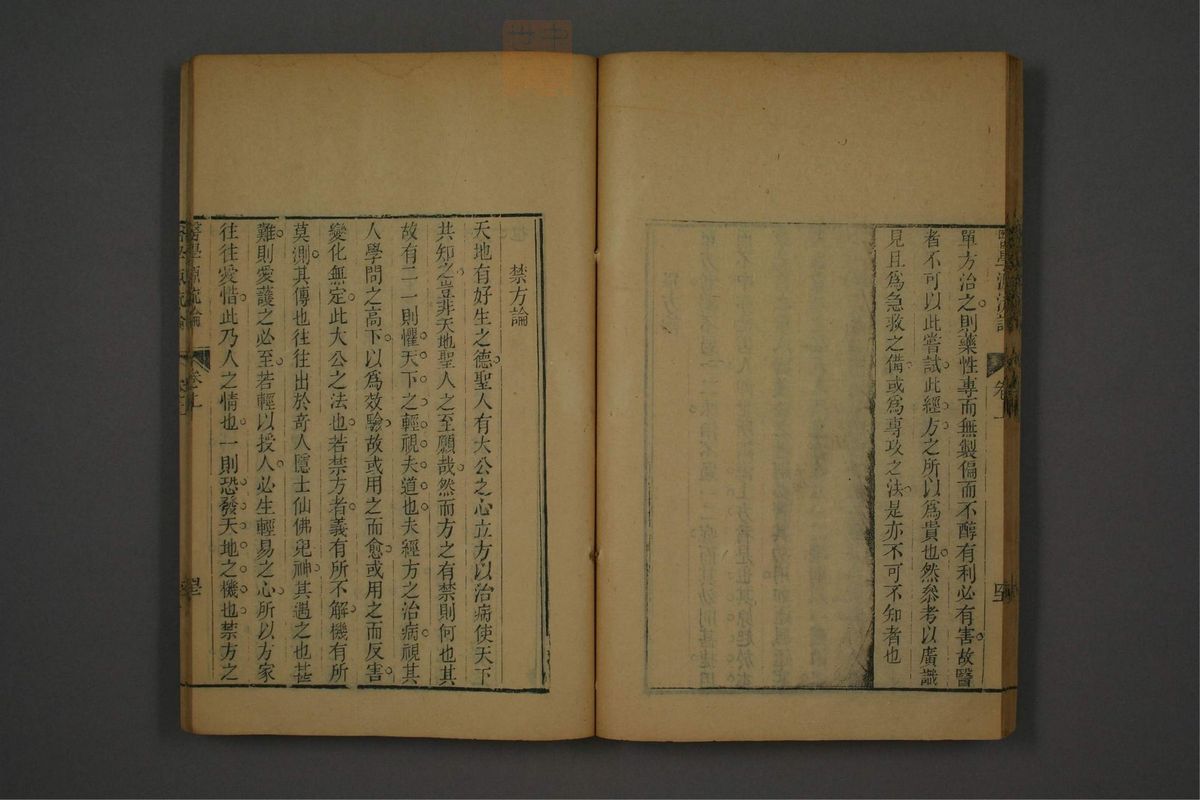 醫學源流論 卷上
單方治之則藥性專而無製偏而不醇有利必有害故醫
者不可以此嘗試此經方之所以爲貴也然參考以廣識
見且爲急救之備或爲專攻之法是亦不可不知者也
禁方論
天地有好生之德聖人有大公之心立方以治病使天下
共知之豈非天地聖人之至願哉然而方之有禁則何也其
故有二一則懼天下之輕視夫道也夫經方之治病視其
人學問之高下以爲效驗故或用之而愈或用之而反害
變化無定此大公之法也若禁方者義有所不解機有所
莫測其傳也往往出於奇人隱士仙佛鬼神其遇之也甚
難則愛護之必至若輕以授人必生輕易之心所以方家
往往愛惜此乃人之情也一則恐發天地之機也禁方之
醫學源流論 卷上